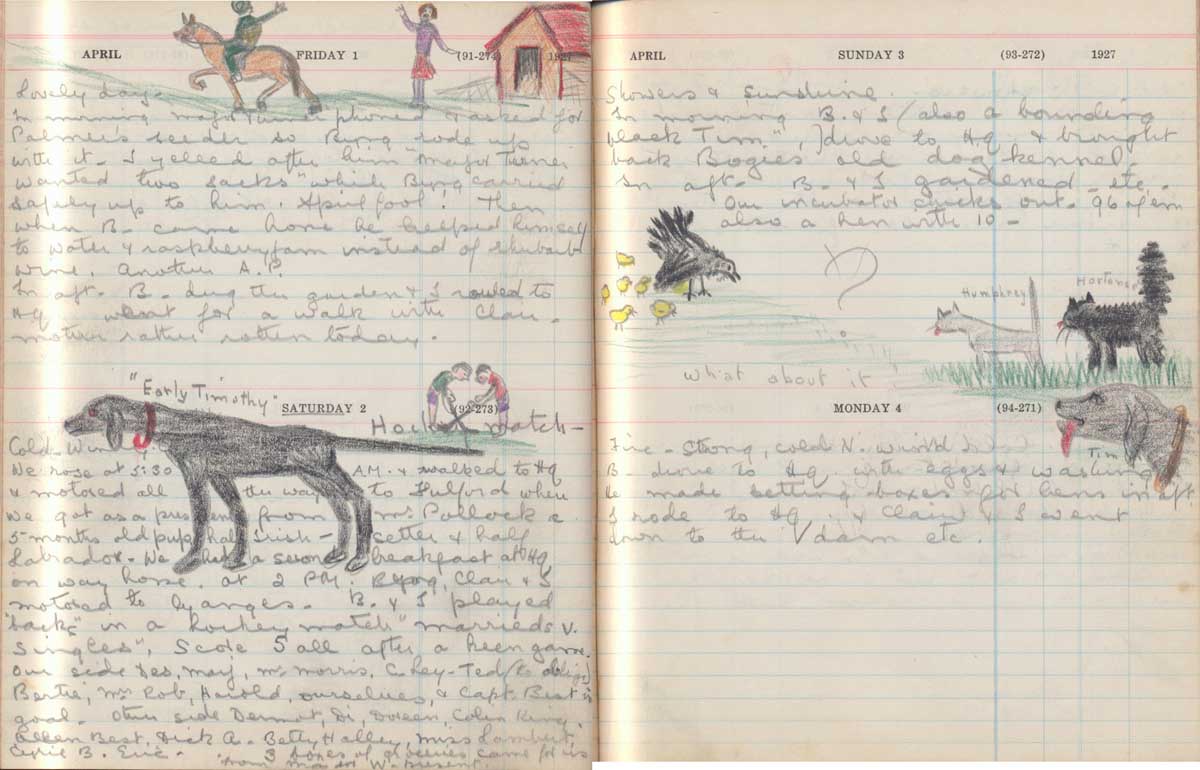 APRIL FRIDAY 1 (91-274) 1927
Lovely day.
In morning major phoned & asked for
Palmer's seeder so Byng rode up
with it. I yelled after him "Major Turner
wanted two sacks" which Byng carried
safely up to him. April fool! Then
when B. came home he helped himself
to water & raspberry jam instead of rhubarb
wine. Another A.P.
In aft. B. dug the garden & I rowed to
HQ & went for a walk with Clair.
mother rather rotten today.
"Early Timothy"
SATURDAY 2 (92-273)
Hockey match-
Cold. Wind
We rose at 5:30 A.M. & walked to HQ
& motored all the way to Fulford when
we got as a present from Mrs Pollock a
5 months old pup half Irish-setter & half
Labrador. We had a second breakfast at HQ
on way home. At 2 PM. Byng, Clair & I
motored to Ganges. B. & I played
"backs" in a hockey match "marrieds v.
singles", Score 5 all after a keen game.
our side Des, May, Mr Morris, C. Ley-Ted (to oblige)
Bertie, Mrs Rob, Harold, ourselves, & Capt. Best in
goal. Other side Dermot, Di, Doreen, Colin King,
Best, Dick A. Betty Halley, Miss Lambert,
Cyril B. Eric. 3 boxes of groceries came for us
from W. present.
APRIL SUNDAY 3 (93-272) 1927
Showers & sunshine.
In morning B. & I (also a bounding
black "Tim",) drove to H.Q. & brought
back Bogies old dog kennel.
In aft. B. & I gardened etc.
Our incubator chicks out. 96 of em
also a hen with 10 -
?
Humphrey
Hortense
What about it
MONDAY 4 (94-271)
Fine - strong, cold N. wind
Tim
B. drove to HQ with eggs & washing
He made setting boxes for hens in aft
I rode to HQ. & Clair & I went
down to the dam etc.